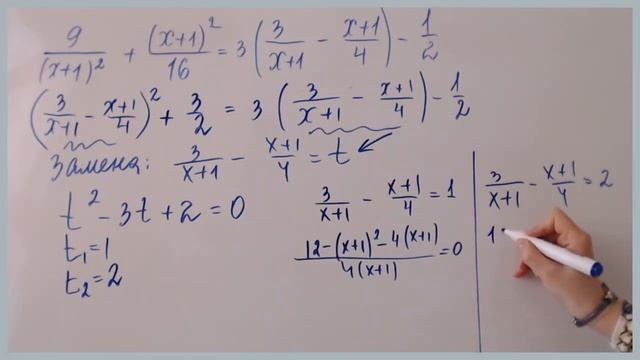 9/(x+1)² + (x+1)²/16 = 3(3/(x+1) − (x+1)/4) − 1/2
(3/(x+1) − (x+1)/4)² + 3/2 = 3(3/(x+1) − (x+1)/4) − 1/2
Замена: 3/(x+1) − (x+1)/4 = t
t² − 3t + 2 = 0
t₁ = 1
t₂ = 2
3/(x+1) − (x+1)/4 = 1
(12 − (x+1)² − 4(x+1))/(4(x+1)) = 0
3/(x+1) − (x+1)/4 = 2
1